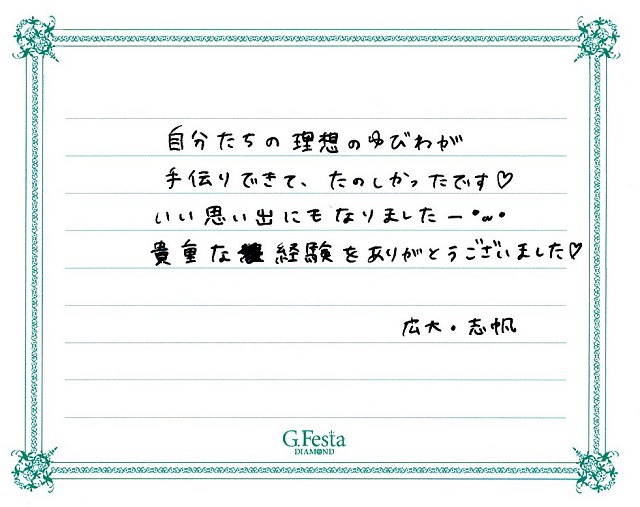 自分たちの理想のゆびわが
手伝りできて、たのしかったです♡
いい思い出にもなりましたー•~•
貴重な経験をありがとうございました♡
広大・志帆
G.Festa
DIAMOND